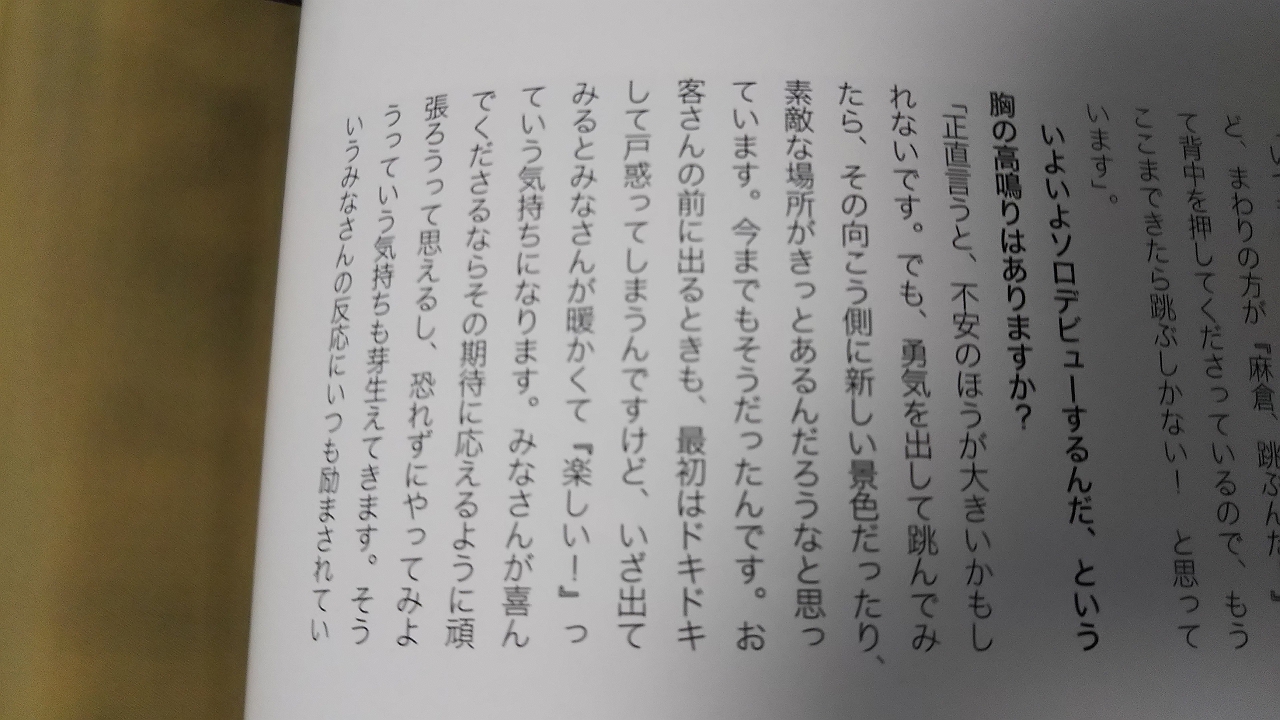 ど、まわりの方が『麻倉、跳ぶんだ』
て背中を押してくださっているので、もう
ここまできたら跳ぶしかない！　と思って
います」。
いよいよソロデビューするんだ、という
胸の高鳴りはありますか？
「正直言うと、不安のほうが大きいかもし
れないです。でも、勇気を出して跳んでみ
たら、その向こう側に新しい景色だったり、
素敵な場所がきっとあるんだろうなと思っ
ています。今までもそうだったんです。お
客さんの前に出るときも、最初はドキドキ
して戸惑ってしまうんですけど、いざ出て
みるとみなさんが暖かくて『楽しい！』っ
ていう気持ちになります。みなさんが喜ん
でくださるならその期待に応えるように頑
張ろうって思えるし、恐れずにやってみよ
うっていう気持ちも芽生えてきます。そう
いうみなさんの反応にいつも励まされてい